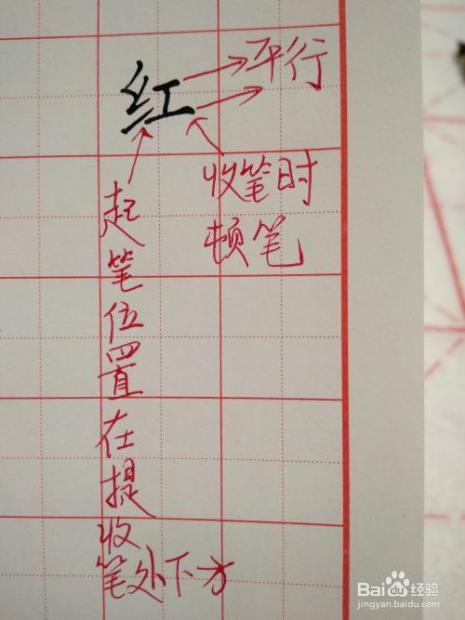 红
平行
收笔时
顿笔
起笔位置在提收
笔处下方
Baidu 经验
jingyan.baidu.com